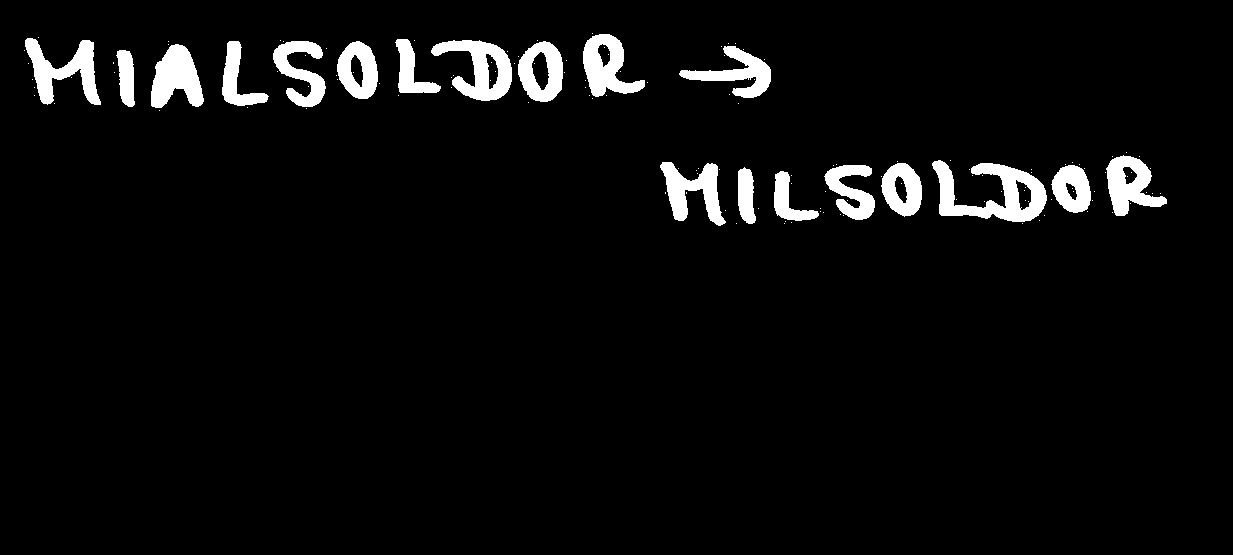 MIALSOLDOR →
MILSOLDOR